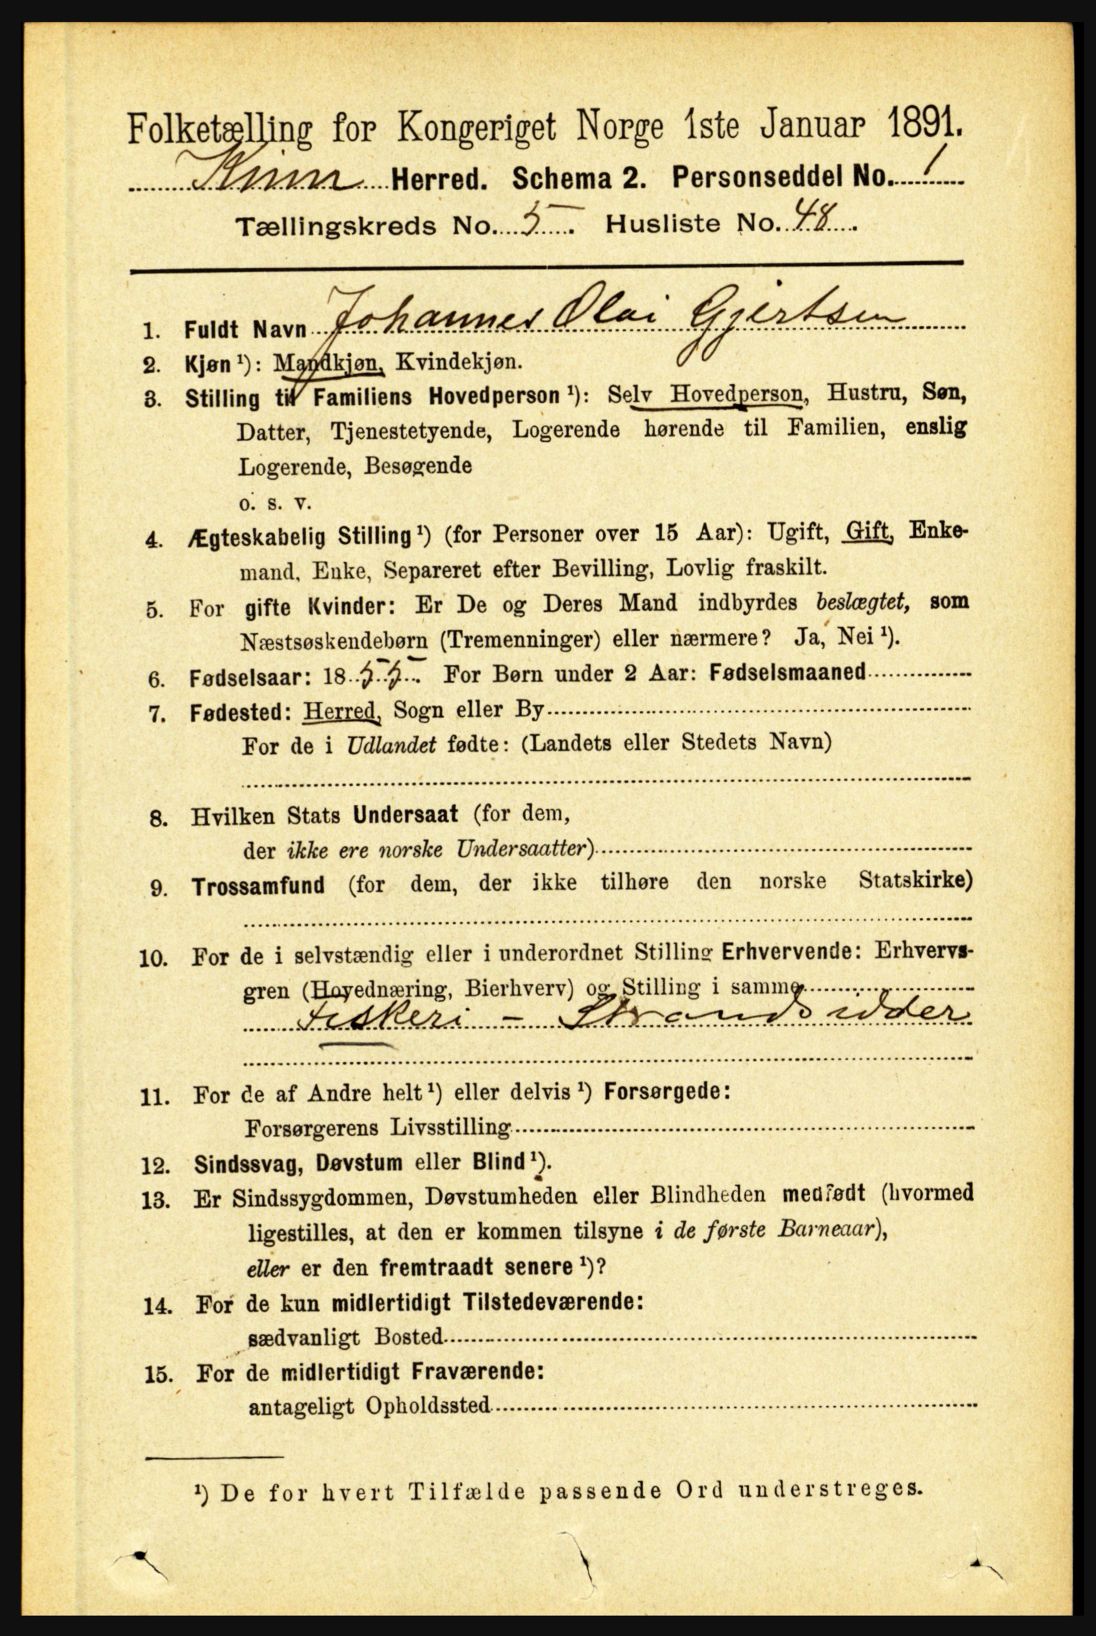 Folketælling for Kongeriget Norge 1ste Januar 1891.
Kinn Herred. Schema 2. Personseddel No. 1
Tællingskreds No. 5. Husliste No. 48.
1. Fuldt Navn Johannes Olai Gjertsen
2. Kjøn ¹): Mandkjøn, Kvindekjøn.
3. Stilling til Familiens Hovedperson ¹): Selv Hovedperson, Hustru, Søn,
Datter, Tjenestetyende, Logerende hørende til Familien, enslig
Logerende, Besøgende
o. s. v.
4. Ægteskabelig Stilling ¹) (for Personer over 15 Aar): Ugift, Gift, Enke-
mand, Enke, Separeret efter Bevilling, Lovlig fraskilt.
5. For gifte Kvinder: Er De og Deres Mand indbyrdes beslægtet, som
Næstsøskendebørn (Tremenninger) eller nærmere? Ja, Nei ¹).
6. Fødselsaar: 1855. For Børn under 2 Aar: Fødselsmaaned
7. Fødested: Herred, Sogn eller By
For de i Udlandet fødte: (Landets eller Stedets Navn)
8. Hvilken Stats Undersaat (for dem,
der ikke ere norske Undersaatter)
9. Trossamfund (for dem, der ikke tilhøre den norske Statskirke)
10. For de i selvstændig eller i underordnet Stilling Erhvervende: Erhvervs-
gren (Hovednæring, Bierhverv) og Stilling i samme
Fiskeri - Strandsidder
11. For de af Andre helt ¹) eller delvis ¹) Forsørgede:
Forsørgerens Livsstilling
12. Sindssvag, Døvstum eller Blind ¹).
13. Er Sindssygdommen, Døvstumheden eller Blindheden medfødt (hvormed
ligestilles, at den er kommen tilsyne i de første Barneaar),
eller er den fremtraadt senere ¹)?
14. For de kun midlertidigt Tilstedeværende:
sædvanligt Bosted
15. For de midlertidigt Fraværende:
antageligt Opholdssted
¹) De for hvert Tilfælde passende Ord understreges.